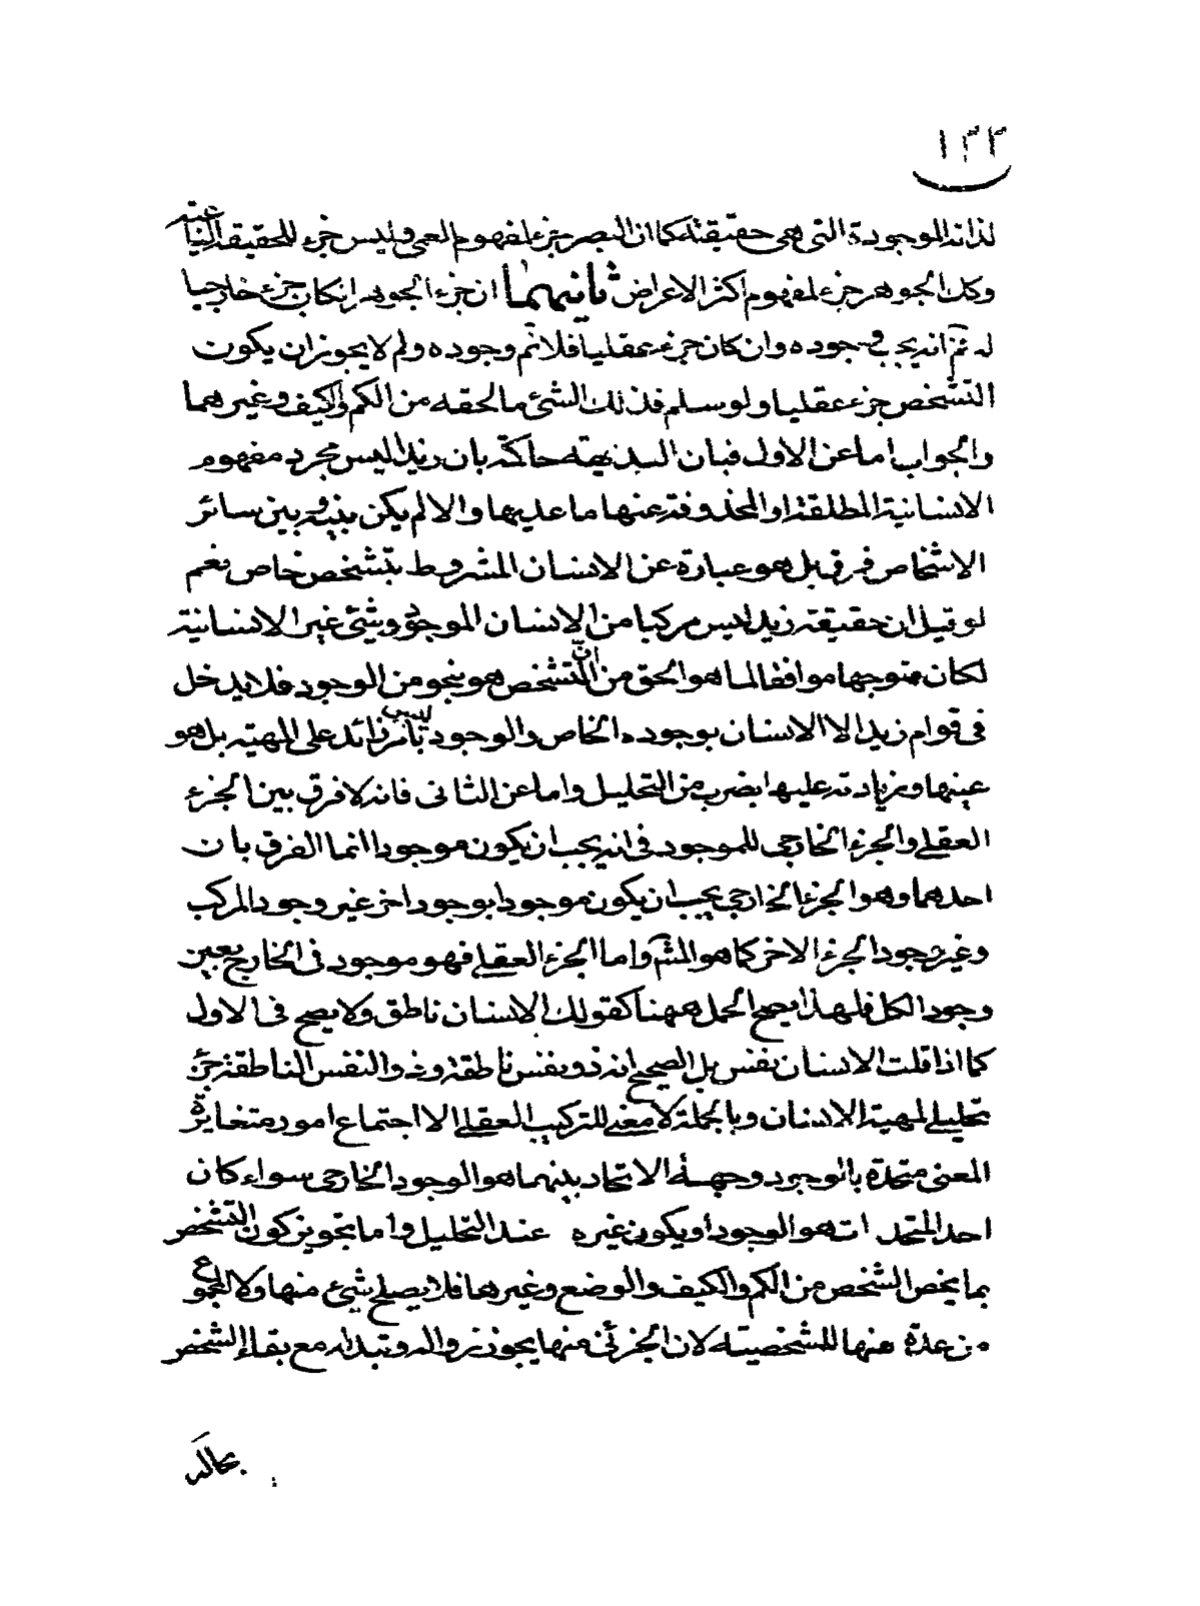 ١٣٣
لذاته الموجودة التى هى حقيقته كما ان البصر جزء لمفهوم العمى وليس جزء للحقيقته
وكذا الجوهر جزء لمفهوم اكثر الاعراض ثانيهما ان جزء الجوهر ان كان جزء خارجيا
له ثم انه يجب فى وجوده وان كان جزء عقليا فلا ثم وجوده ولم لا يجوز ان يكون
التشخص جزء عقليا ولو سلم فذلك الشئ ما لحقه من الكم والكيف وغيرهما
والجواب اما عن الاول فبان البديهته حاكمة بان زيدا ليس مجرد مفهوم
الانسانية المطلقة او المحذوفة عنها ما عديها والا لم يكن بينه وبين سائر
الاشخاص فرق بل هو عبارة عن الانسان المشروط بتشخص خاص نعم
لو قيل ان حقيقته زيد ليس مركبا من الانسان الموجود وشئ غير الانسانية
لكان متوجها موافقا لما هو الحق من ان التشخص هو بنحو من الوجود فلا يدخل
فى قوام زيد الا الانسان بوجوده الخاص والوجود ليس بامر زائد على المهية بل هو
عينها وزيادته عليها بضرب من التحليل واما عن الثانى فانه لا فرق بين الجزء
العقلى والجزء الخارجى للموجود فى انه يجب ان يكون موجودا انما الفرق بان
احدهما وهو الجزء الخارجى يجب ان يكون موجودا بوجود اخر غير وجود المركب
وغير وجود الجزء الاخر كما هو المشهور واما الجزء العقلى فهو موجود فى الخارج بعين
وجود الكل فلهذا يصح الحمل ههنا كقولك الانسان ناطق ولا يصح فى الاول
كما اذا قلت الانسان نفس بل الصحيح انه ذو نفس ناطقة والنفس الناطقة جزء
تحليلى لمهية الانسان وبالجملة لا معنى للتركيب العقلى الا اجتماع امور متغايرة
المعنى متحدة بالوجود وجهة الاتحاد بينهما هو الوجود الخارجى سواء كان
احد المتحد ات هو الوجود او يكون غيره عند التحليل واما تجويز كون التشخص
بما يخص الشخص من الكم والكيف والوضع وغيرها فلا يصلح شئ منها ولا المجموع
من عدة منها للشخصيته لان الجزئى منها يجوز زواله وتبدله مع بقاء الشخص
بحاله